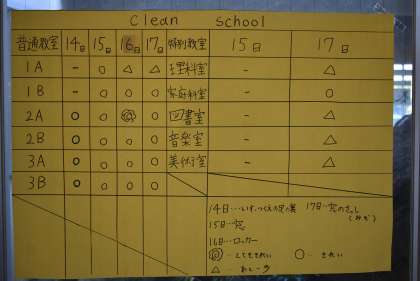 Clean school
普通教室 14日 15日 16日 17日 特別教室 15日 17日
1A - ○ △ △ 理科室 - △
1B - ○ ○ ○ 家庭科室 - ○
2A ○ ○ ◎ ○ 図書室 - △
2B ○ ○ ○ ○ 音楽室 - △
3A ○ ○ ○ ○ 美術室 - △
3B ○ ○ ○ ○
14日…いす、つくえの足の裏 17日…窓のさっし
(みぞ)
15日…窓
16日…ロッカー
◎…とてもきれい ○…きれい
△…あと一歩